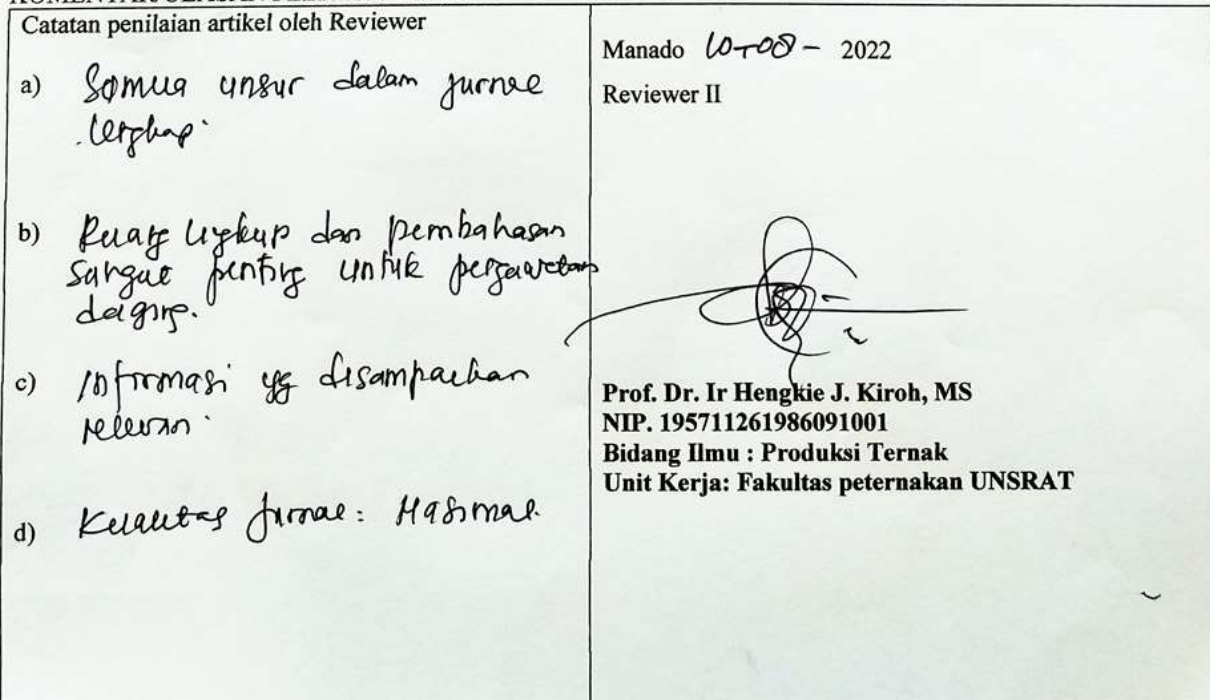 Catatan penilaian artikel oleh Reviewer
a) Semua unsur dalam jurnal
lengkap.
b) Ruang lingkup dan pembahasan
sangat penting untuk pengawetan
daging.
c) Informasi yg disampaikan
relevan.
d) Kualitas jurnal: Nasional.
Manado 10-08- 2022
Reviewer II
Prof. Dr. Ir Hengkie J. Kiroh, MS
NIP. 195711261986091001
Bidang Ilmu : Produksi Ternak
Unit Kerja: Fakultas peternakan UNSRAT